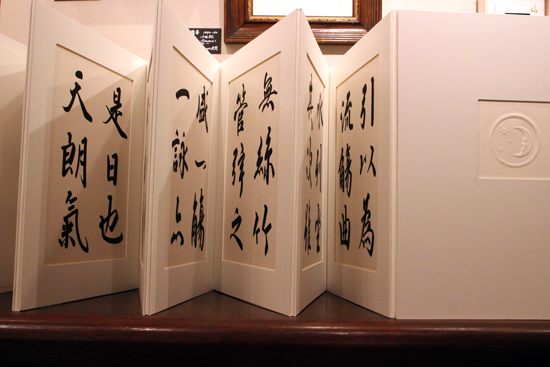 引以為
流觴曲
水列坐
其次雖
無絲竹
管弦之
盛一觴
一詠亦
是日也
天朗氣